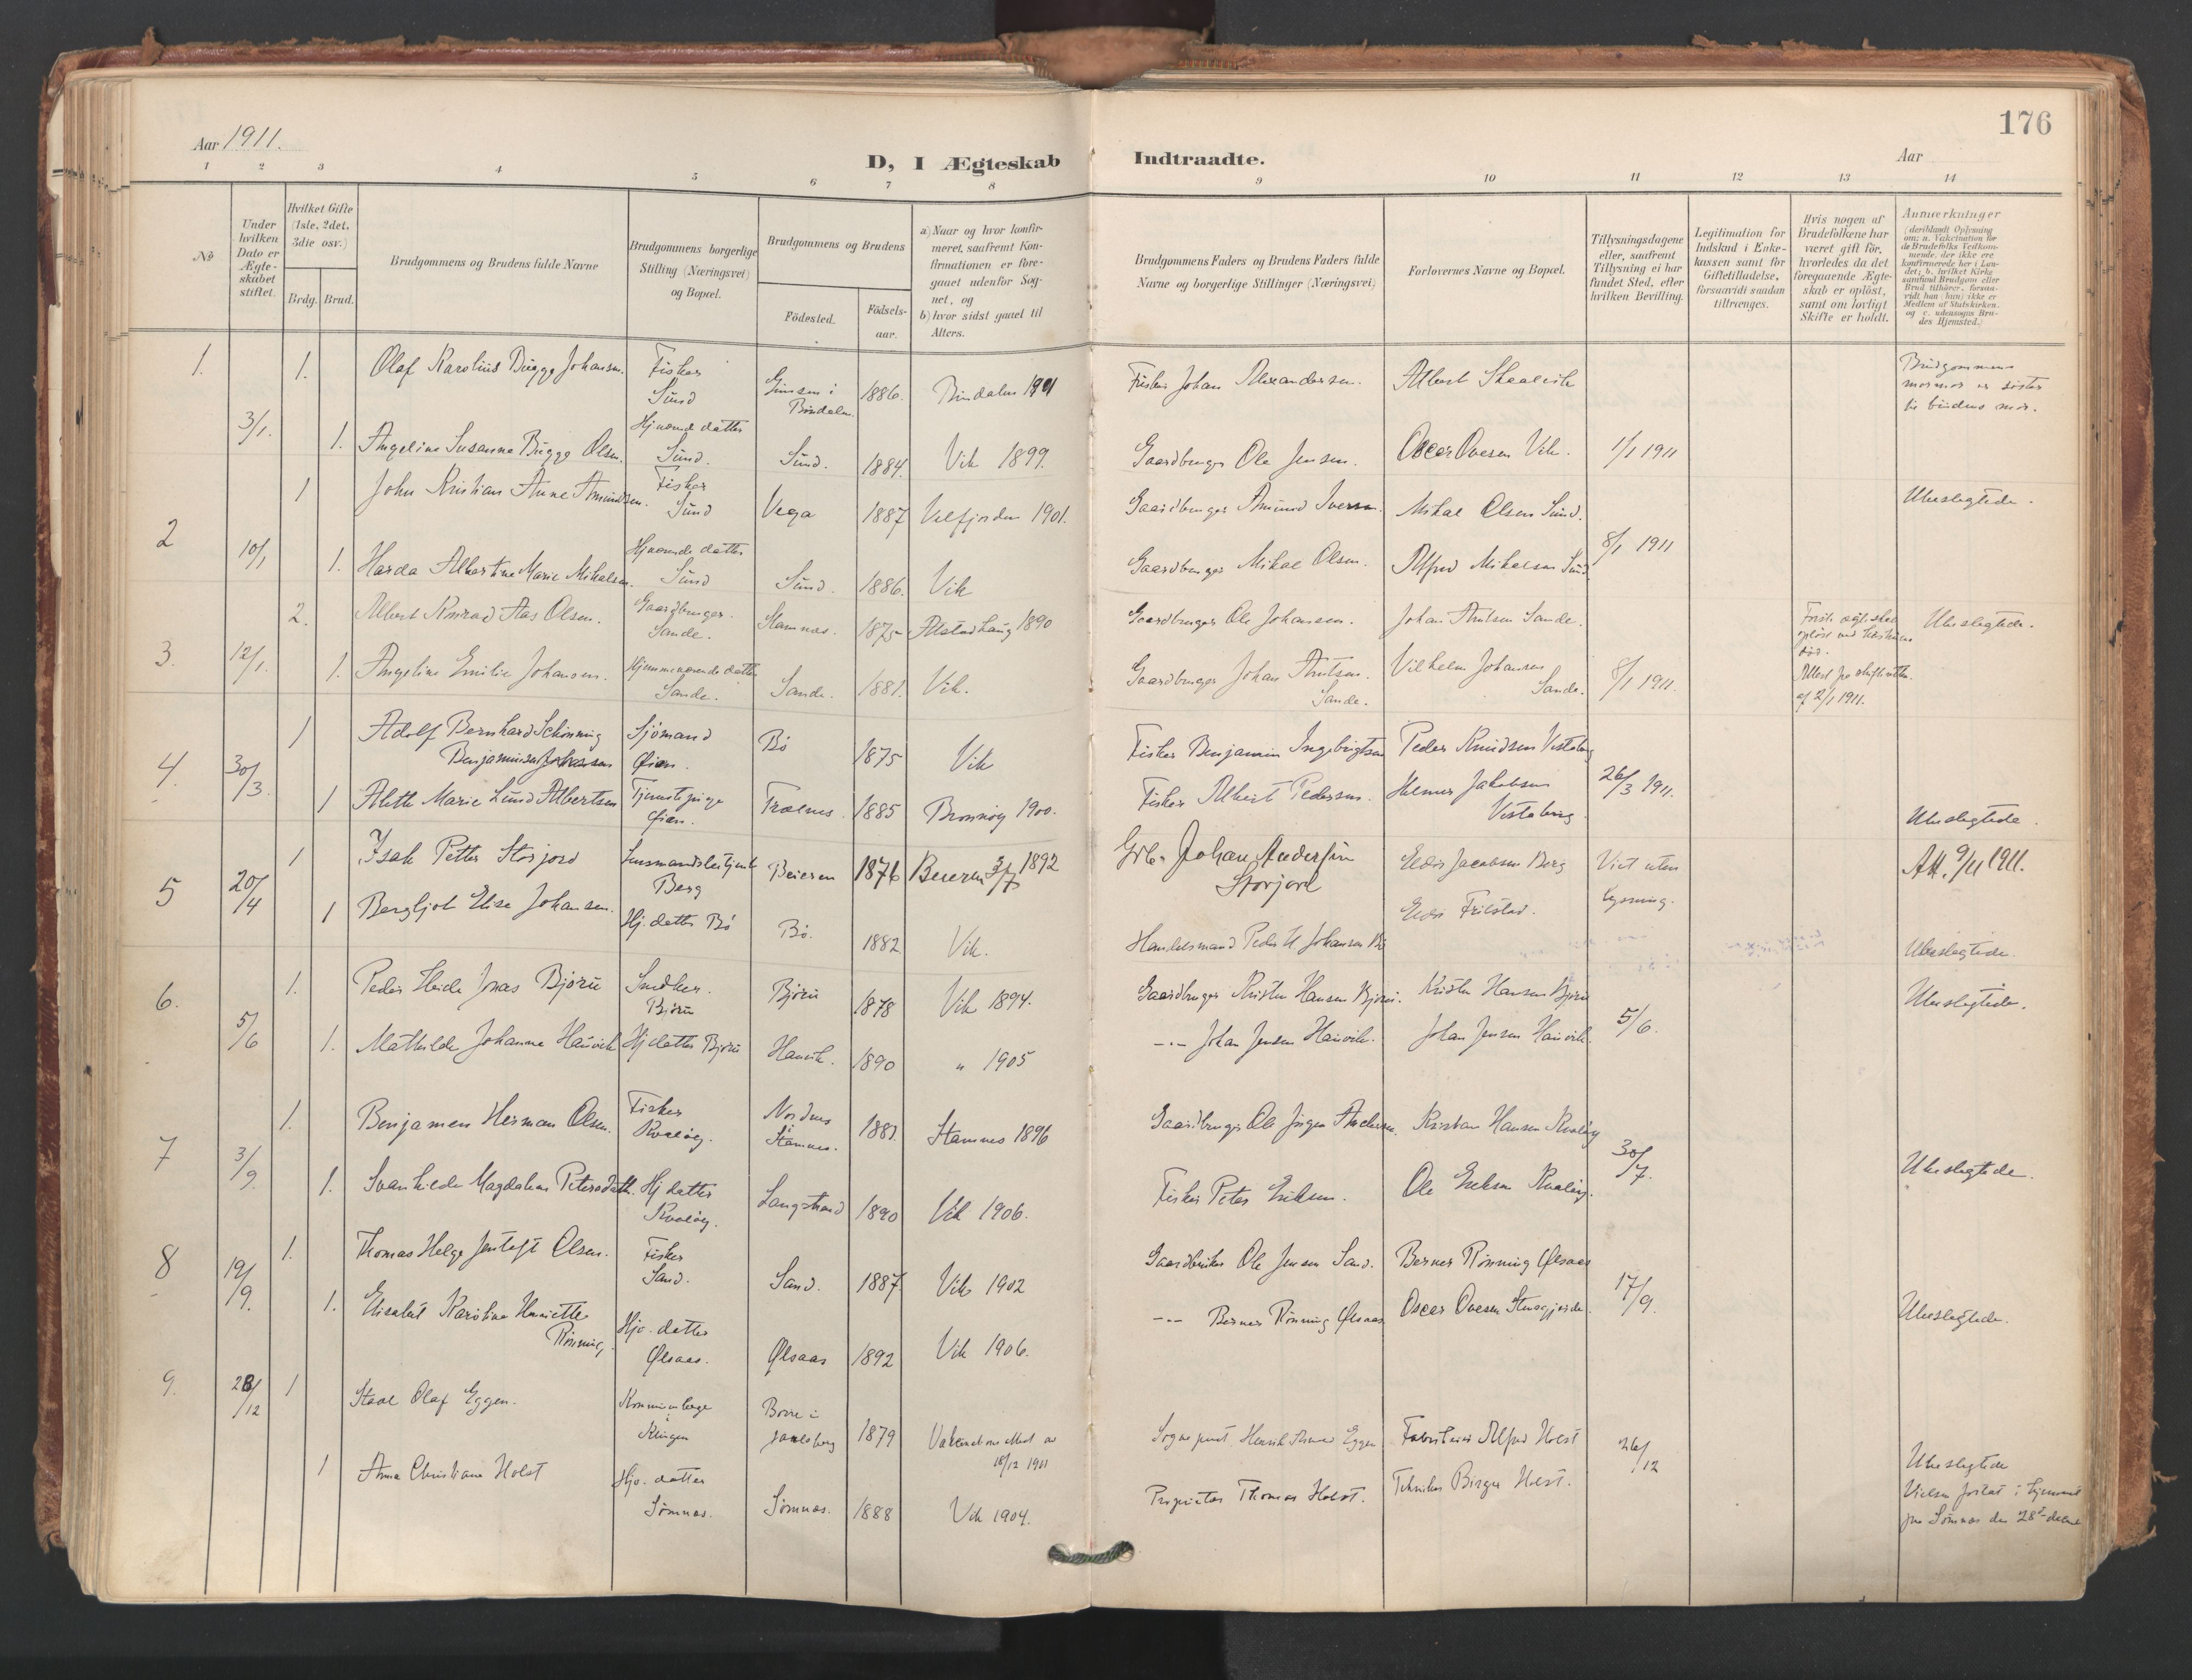 176
Aar 1911.
D, I Ægteskab Indtraadte.
Aar
1 2 3 4 5 6 7 8 9 10 11 12 13 14
No
Under hvilken Dato er Ægteskabet stiftet.
Hvilket Gifte (1ste, 2det, 3die osv.)
Brdg. Brud.
Brudgommens og Brudens fulde Navne
Brudgommens borgerlige Stilling (Næringsvei) og Bopæl.
Brudgommens og Brudens
Födested.
Födsels-aar.
a) Naar og hvor konfirmeret, saafremt Konfirmationen er foregaaet udenfor Sognet, og
b) hvor sidst gaaet til Alters.
Brudgommens Faders og Brudens Faders fulde Navne og borgerlige Stillinger (Næringsvei)
Forlovernes Navne og Bopæl.
Tillysningsdagene eller, saafremt Tillysning ei har fundet Sted, efter hvilken Bevilling.
Legitimation for Indskud i Enkekassen samt for Giftetilladelse, forsaavidt saadan tiltrænges.
Hvis nogen af Brudefolkene har været gift før, hvorledes da det foregaaende Ægteskab er oplöst, samt om lovligt Skifte er holdt.
Anmærkninger
1. 1. Olaf Karolius Bugge Johansen. Fisker Sund Gimsen i Bindalen 1886. Bindalen 1901 Fisker Johan Alexandersen. Albert Brudgommens mormor er søster til brudens mor.
3/1. 1. Angeline Susanne Bugge Olsen. Hjemmev. datter Sund. Sund. 1884. Vik 1899. Gaardbruger Ole Jensen. Oscar Ovesen Vik. 1/1 1911
2 1 John Kristian Aune Amundsen. Fisker Sund Vega 1887 Velfjorden 1901. Gaardbruger Amund Iversen. Mikal Olsen Sund. Ubeslegtede.
10/1 1. Harda Albertine Marie Mikalsen. datter Sund Sund. 1886. Vik Gaardbruger Mikal Olsen. Alfred Mikalsen Sund 8/1 1911
3. 12/1. 2. Albert Konrad Aas Olsen. Gaardbruger. Sande. Stamnes. 1875 Alstadhaug 1890 Gaardbruger Ole Johansen. Johan Antsen Sande. Ubeslegtede.
1. Angeline Emilie Johansen. Hjemmeværende datter Sande. Sande. 1881. Vik. Gaardbruger Johan Antsen. Sande. Vilhelm Johansen Sande. 8/1 1911. af 2/1 1911.
4. 30/3. 1 Adolf Bernhard Schønning Benjaminsen Johansen Sjömand Øien. Bö 1875 Vik Fisker Benjamin Ingebrigtsen Peder Knudsen
1 Aleth Marie Lund Albertsen Tjenestepige Øien. Trælnes. 1885 Brønnøy 1900. Fisker Albert Pedersen. Helmer Jakobsen 26/3 1911. Ubeslegtede.
5 20/4 1 Isak Petter Storjord Lensmandsbetjent Berg Beieren 1876 Beieren 3/7 1892 Grbr. Johan Andersen Storjord Eldor Jacobsen Berg Viet uten lysning. Att. 9/11 1911.
1 Bergljot Elise Johansen. Hj. datter Bö Bö. 1882 Vik. Handelsmand Peder Johansen Bö Ubeslegtede.
6. 5/6 1. Peder Heide Jonas Bjørn Snedker. Bjørn Bjørn 1878 Vik 1894. Gaardbruger Kristen Hansen Bjørn. Kristen Hansen Bjørn Ubeslegtede.
1. Mathilde Johanne Hauvik Hj datter Bjørn Hauvik. 1890 " 1905 -"- Johan Jensen Hauvik. Johan Jensen Hauvik. 5/6.
7 3/9 1. Benjamen Herman Olsen. Fisker Kvaløy. Nordnes i Stamnes. 1881. Stamnes 1896 Gaardbruger Ole Jørgen Andersen. Kristian Hansen Kvaløy 30/7.
1. Svanhilde Magdalene Petersdatter. Hj datter Kvaløy. Langstrand 1890 Vik 1906. Fisker Peter Eriksen. Ole Eriksen Kvaløy. Ubeslegtede.
8 19/9. 1. Thomas Helge Jentoft Olsen. Fisker Sand. Sand. 1887. Vik 1902 Gaardbruker Ole Jensen Sand. Berner Rønning Ølsaas 17/9.
1. Elisabet Karoline Henriette Rønning, Hjv. datter Ølsaas. Ølsaas 1892 Vik 1906. -"- Berner Rønning Ølsaas Oscar Ovesen Ubeslegtede.
9. 28/12 1 Olaf Eggen. Borre i Jarlsberg 1879 18/12 1901 Sogneprest Henrik Eggen Alfred Holst 26/12
1 Anna Christiane Holst Hjv. datter Sömnes. Sömnes. 1888 Vik 1904. Proprietær Thomas Holst. Tekniker Birger Holst. Ubeslegtede Vielsen foretat i hjemmet paa Sömnes den 28de